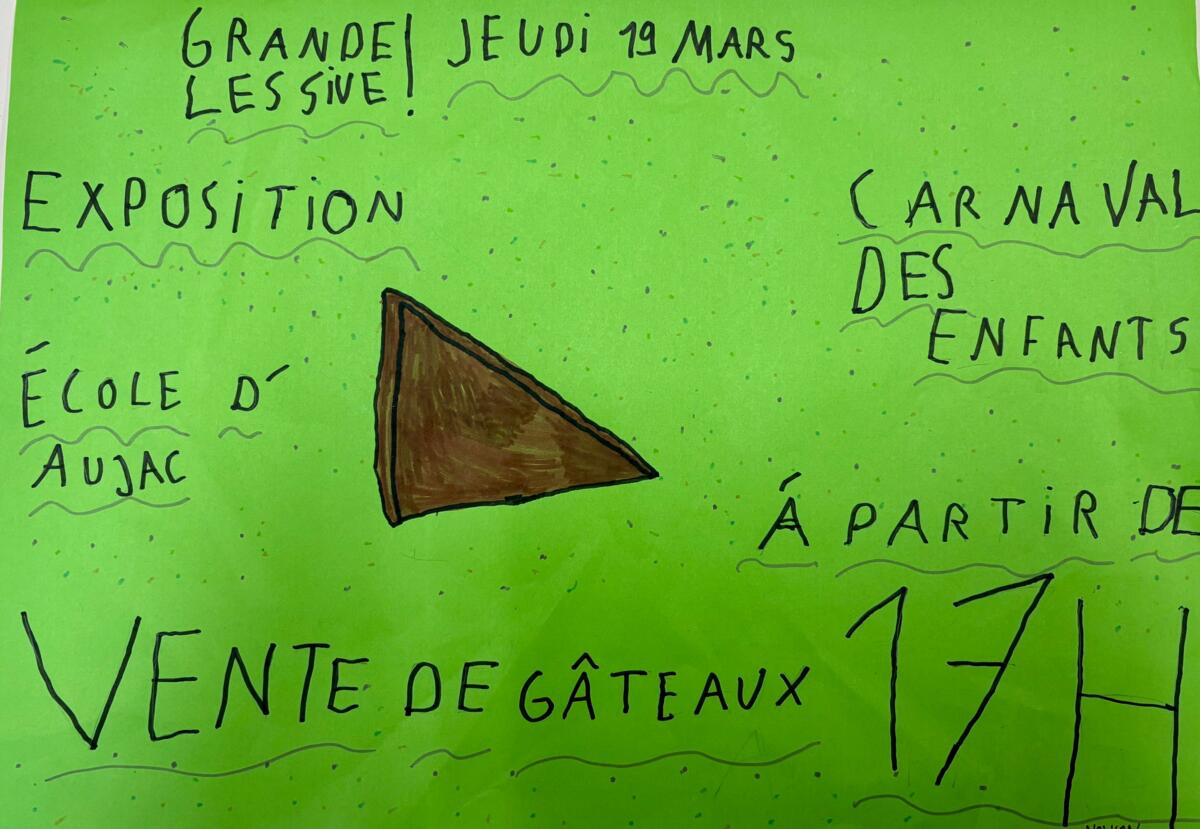 GRANDE
LESSIVE!
JEUDi 19 MARS
EXPOSiTiON
CARNAVAL
DES
ENFANTS
ÉCOLE D'
AUJAC
Á PARTiR DE
17H
VENTE DE GÂTEAUX